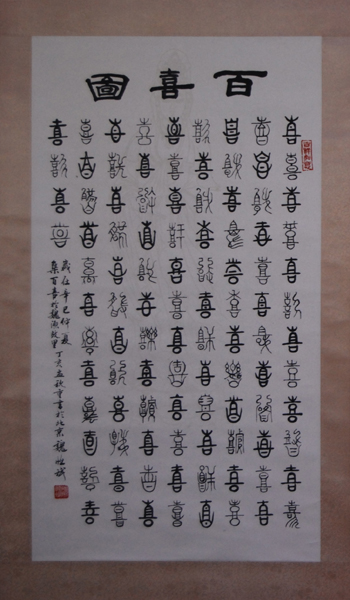 百喜圖
喜喜喜喜喜喜喜喜喜喜喜喜
喜喜喜喜喜喜喜喜喜喜喜喜
喜喜喜喜喜喜喜喜喜喜喜喜
喜喜喜喜喜喜喜喜喜喜喜喜
喜喜喜喜喜喜喜喜喜喜喜喜
喜喜喜喜喜喜喜喜喜喜喜喜
喜喜喜喜喜喜喜喜喜喜喜喜
喜喜喜喜喜喜喜喜喜喜喜喜
喜喜喜喜
歲在辛巳仲夏
集百喜於魏源故里
丁亥孟秋重書於北京 魏